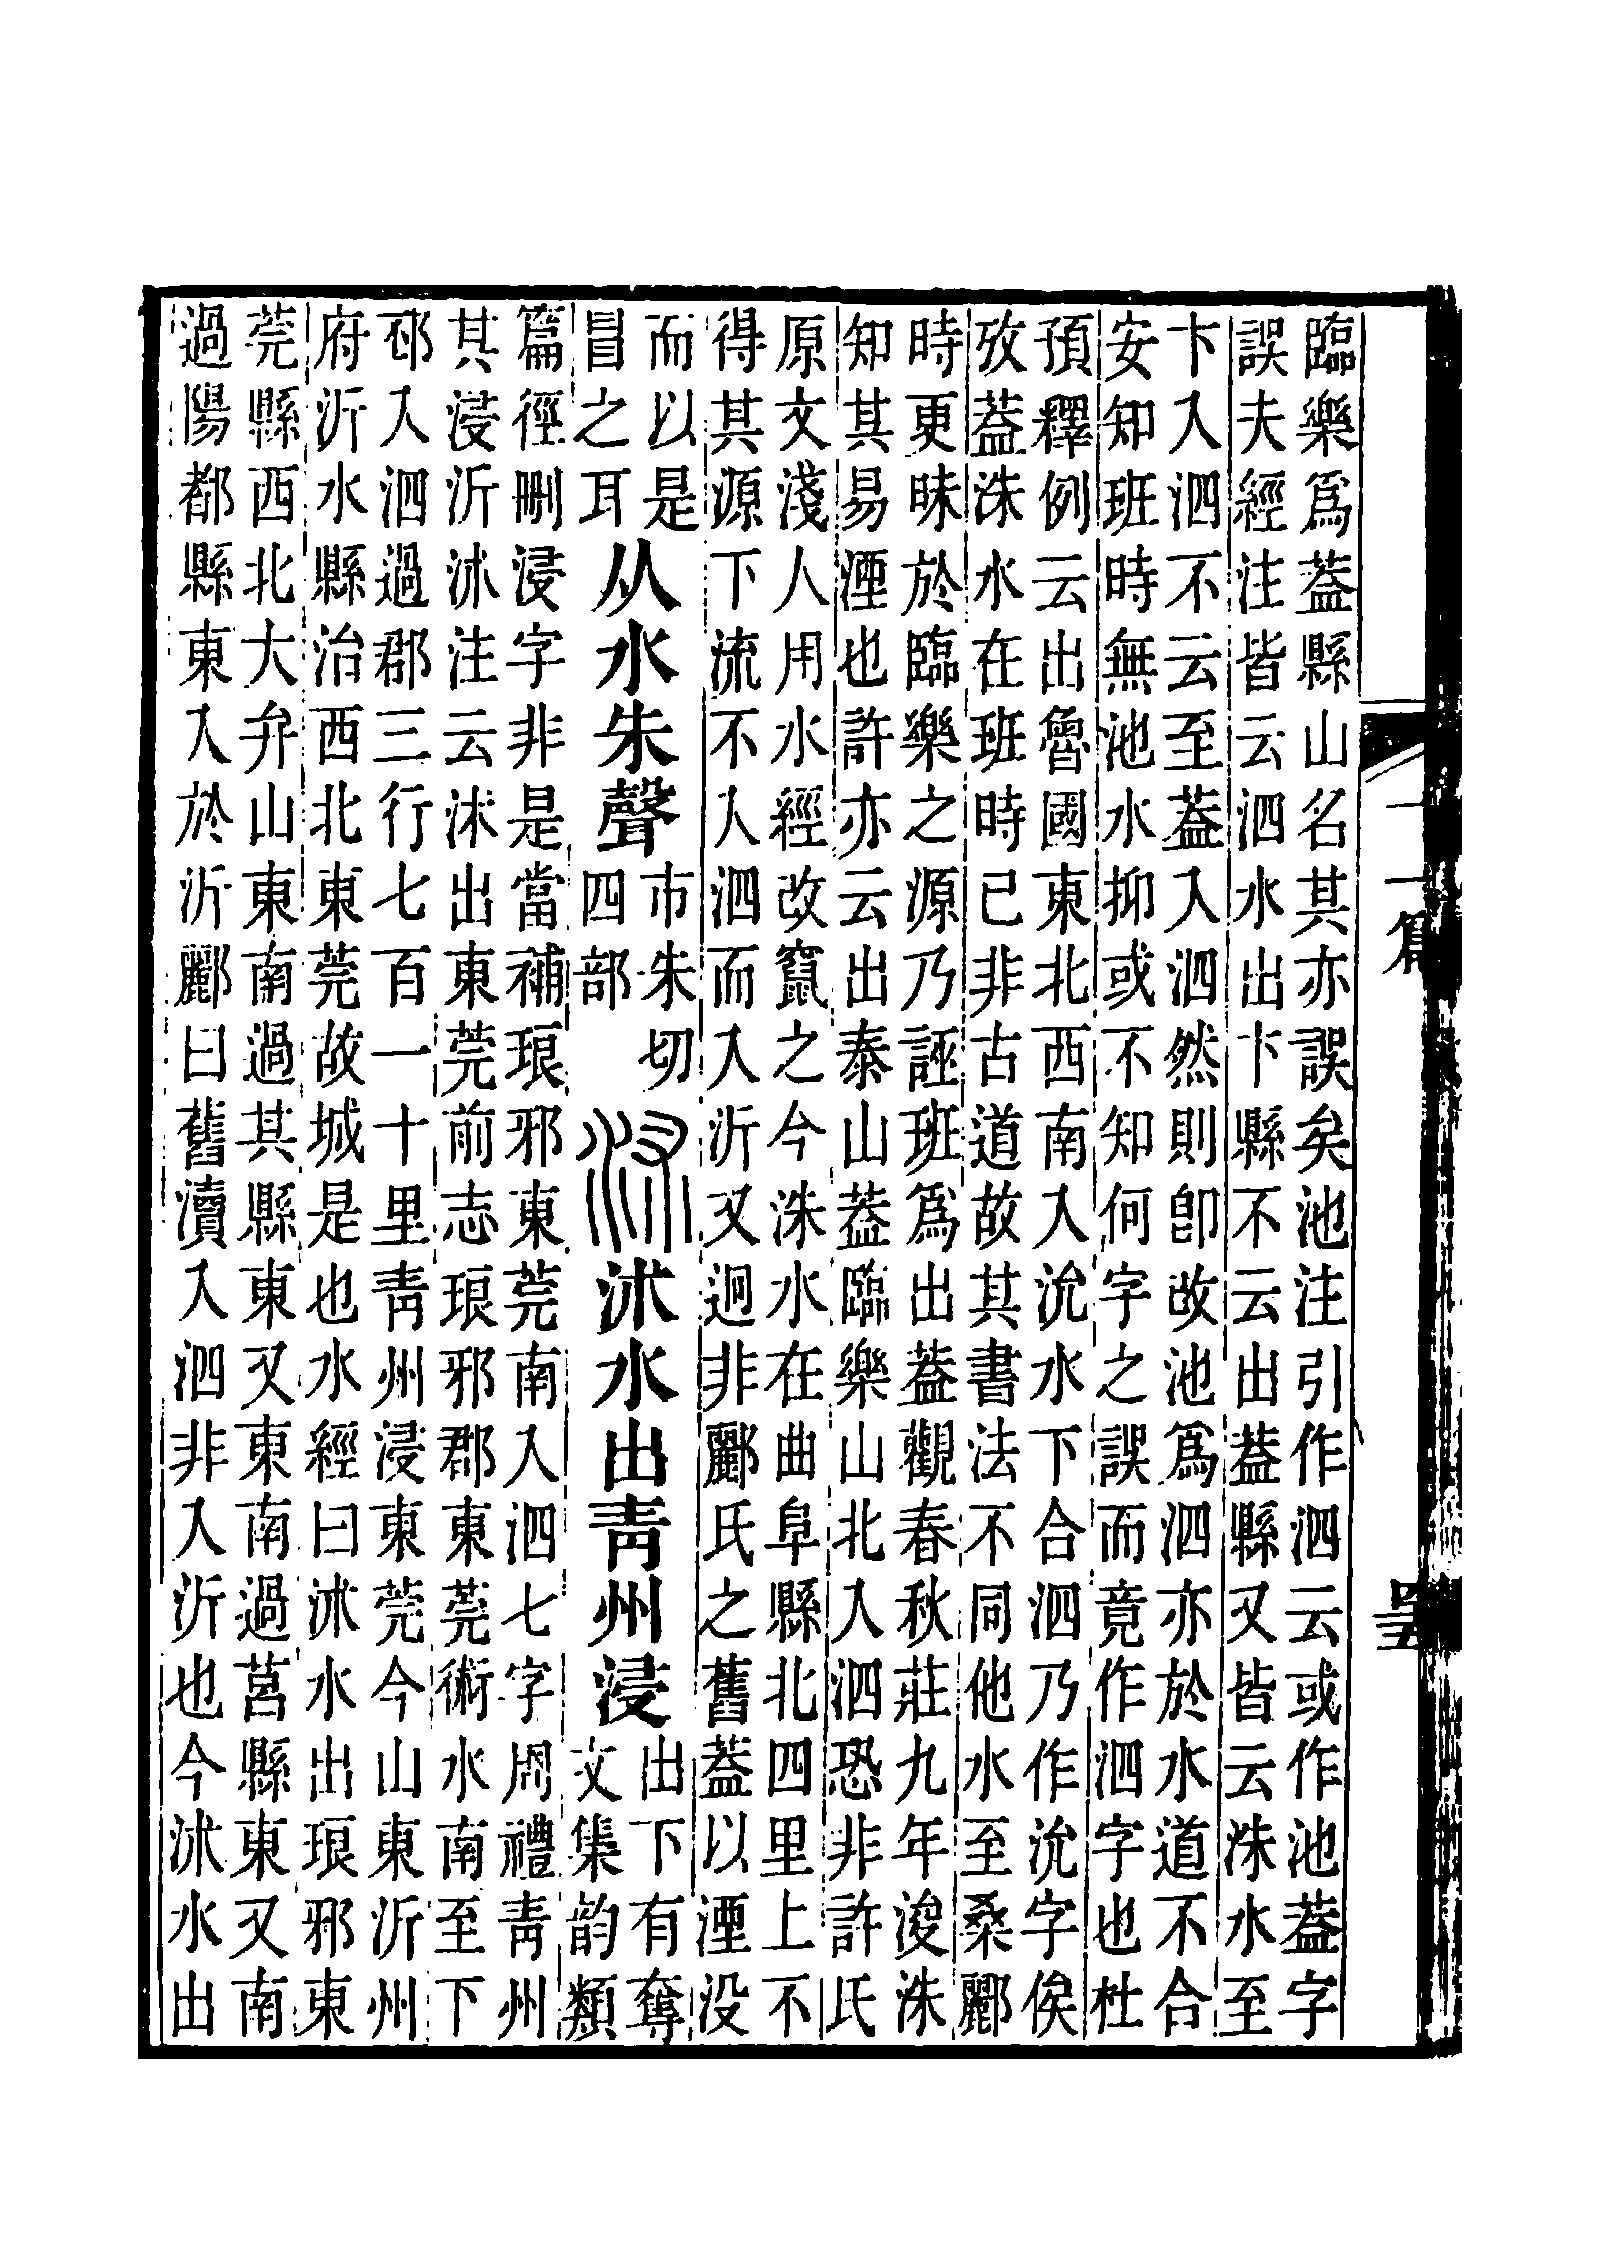 臨樂爲葢縣山名其亦誤矣池注引作泗云或作池葢字
誤夫經注皆云泗水出卞縣不云出葢縣又皆云洙水至
卞入泗不云至葢入泗然則卽改池爲泗亦於水道不合
安知班時無池水抑或不知何字之誤而竟作泗字也杜
預釋例云出魯國東北西南入沇水下合泗乃作沇字俟
攷葢洙水在班時已非古道故其書法不同他水至桑酈
時更昧於臨樂之源乃誣班爲出葢觀春秋莊九年浚洙
知其易湮也許亦云出泰山葢臨樂山北入泗恐非許氏
原文淺人用水經改竄之今洙水在曲阜縣北四里上不
得其源下流不入泗而入沂又迥非酈氏之舊葢以湮没
而以是
冒之耳
从水朱聲
市朱切
四部
沭水出青州浸
出下有奪
文集韵類
篇徑刪浸字非是當補琅邪東莞南入泗七字周禮青州
其浸沂沭注云沭出東莞前志琅邪郡東莞術水南至下
邳入泗過郡三行七百一十里青州浸東莞今山東沂州
府沂水縣治西北東莞故城是也水經曰沭水出琅邪東
莞縣西北大弁山東南過其縣東又東南過莒縣東又南
過陽都縣東入於沂酈曰舊瀆入泗非入沂也今沭水出
十一篇上